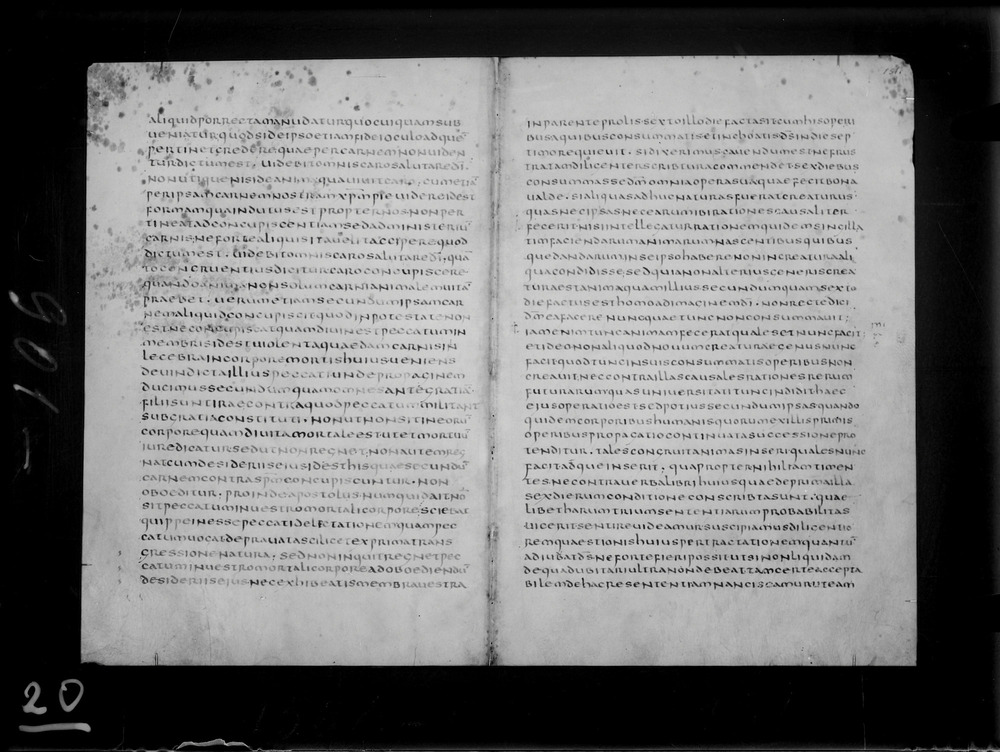 aliquidporrectamanudaturquocuiquamsub
ueniaturquodsideipsoetiamfideioculoadque
pertinetcredererequaepercarnemnonuiden
turdictumest·uidebitomniscarosalutaredi·
nonutiquenisideanimaquauiuitcaro·cumetia
peripsamcarnemnostramxpmpieuidereidest
formamquaindutusestpropternosnonper
tineatadconcupiscentiamsedadministeriu
carnisnefortealiquisitauelitaccciperequod
dictumest·uidebitomniscarosalutaredi·qua
tocongruentiusdiciturcaroconcupiscere
quandoanimanonsolumcarnianimalemuita
praebet·uerumetiamsecundumipsamcar
nemaliquidconcupiscitquodinpotestatenon
estneconcupiscatquamdiuinestpeccatumin
membrisidestuiolentaquaedamcarnisin
lecebraincorporemortishuiusueniens
deuindictailliuspeccatiundepropaginem
ducimussecundumquamomnesantegratia·
filiisuntiraecontraquodpeccatummilitant
subgratiaconstituti·nonutnonsitineoru
corporequamdiuitamortaleestutetmortuu
iuredicatursedutnonregnet·nonautemreg
natcumdesideriiseiusidesthisquaesecundu
carnemcontraspmconcupiscuntur·non
oboeditur·proindeapostolusnumquidaitno
sitpeccatuminuestromortalicorporesciebat
quippeinessepeccatidelectationemquampec
catumuocatdeprauatascilicetexprimatrans
gressionenatura·sednoninquitregnetpec
catuminuestromortalicorporeadoboediendu
desideriiseiusnecexhibeatismembrauestra
inparenteprolissextoillodiefactasitcumhisoperi
busaquibusconsummatisetinchoatisdsindiesep
timorequieuit·sidixerimuscauendumestnefrus
tratamdiligenterscripturacommendetsexdiebus
consummassedmomniaoperasuaquaefecitbona
ualde·sialiquasadhucnaturasfueratcreaturus
quasnecipsasnecearumibirationescausaliter
feceritnisiintellegaturrationemquidemsingilla
timfaciendarumanimarumnascentibusquibus
quedandaruminseipsohaberenonincreaturaali
quacondidisse·sedquianonalteriusgeneriscrea
turaestanimaquamilliussecundumquamsexto
diefactusesthomoadimaginemdi·nonrectedici
dmeafacerenuncquaetuncnonconsummauit·
iamenimtuncanimamfeceratqualesetnuncfacit
etideononaliquodnouumcreaturaegenusnunc
facitquodtuncinsuisconsummatisoperibusnon
creauitneccontraillascausalesrationesrerum
futurarumquasuniuersitatituncindidithaec
eiusoperatioestsedpotiussecundumipsasquando
quidemcorporibushumanisquorumexillisprimis
operibuspropagatiocontinuatasuccessionepro
tenditur·talescongruitanimasinseriqualesnunc
facitadqueinserit·quapropternihiliamtimen
tesnecontrauerbalibrihuiusquaedeprimailla
sexdierumconditioneconscribtasunt·quae
libetharumtriumsententiarumprobabilitas
uiceritsentireuideamursuscipiamusdiligentio
remquaestionishuiuspertractationemquantu
adiubatdsnefortefieripossitutsinonliquidam
dequadubitariultranondebeattamcerteaccepta
bilemdehacresententiamnanciscamuruteam
20